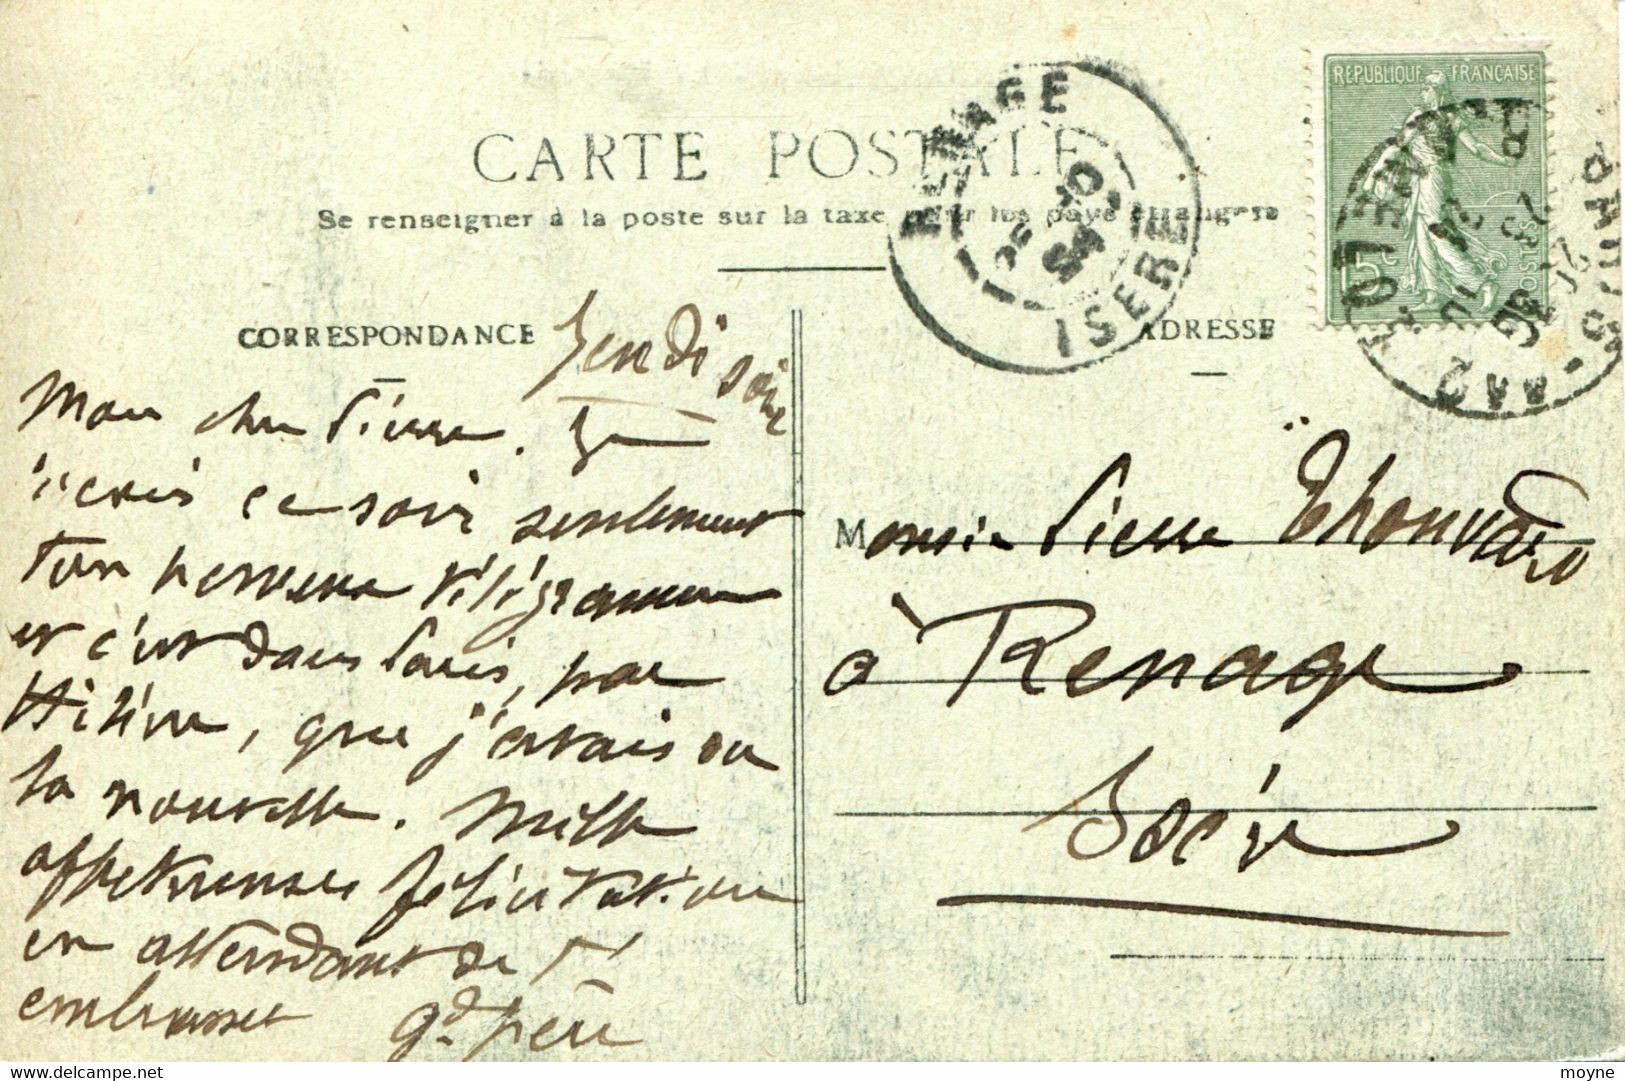 CARTE POSTALE
Se renseigner à la poste sur la taxe pour les pays étrangers
CORRESPONDANCE
ADRESSE
RENAGE
ISERE
REPUBLIQUE FRANÇAISE
15c
POSTES
Jeudi soir
Mon cher Pierre. Je
reçois ce soir seulement
ton nouveau télégramme
et c'est dans Paris, par
Hélène, que j'avais eu
la nouvelle. Mille
affectueuses félicitations
en attendant de t'
embrasser gd père
Monsieur Pierre Thouvard
à Renage
Isère
delcampe.net
moyne